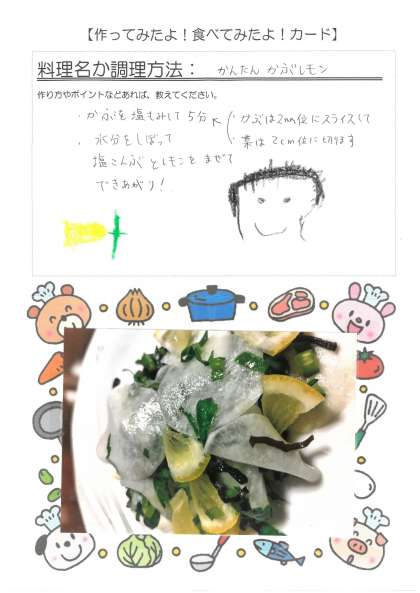 【作ってみたよ！食べてみたよ！カード】
料理名か調理方法： かんたん かぶレモン
作り方やポイントなどあれば、教えてください。
・かぶを塩もみして5分
・水分をしぼって
塩こんぶとレモンをまぜて
できあがり！
・かぶは2mm位にスライスして
・葉は2cm位に切ります